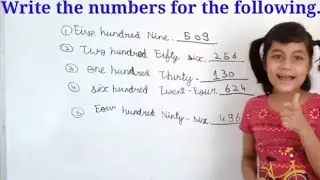 Write the numbers for the following.
① Five hundred Nine. 509
② Two hundred Fifty six. 256
③ one hundred Thirty. 130
④ six hundred Twent-Four. 624
⑤ Four hundred Ninty-six. 496